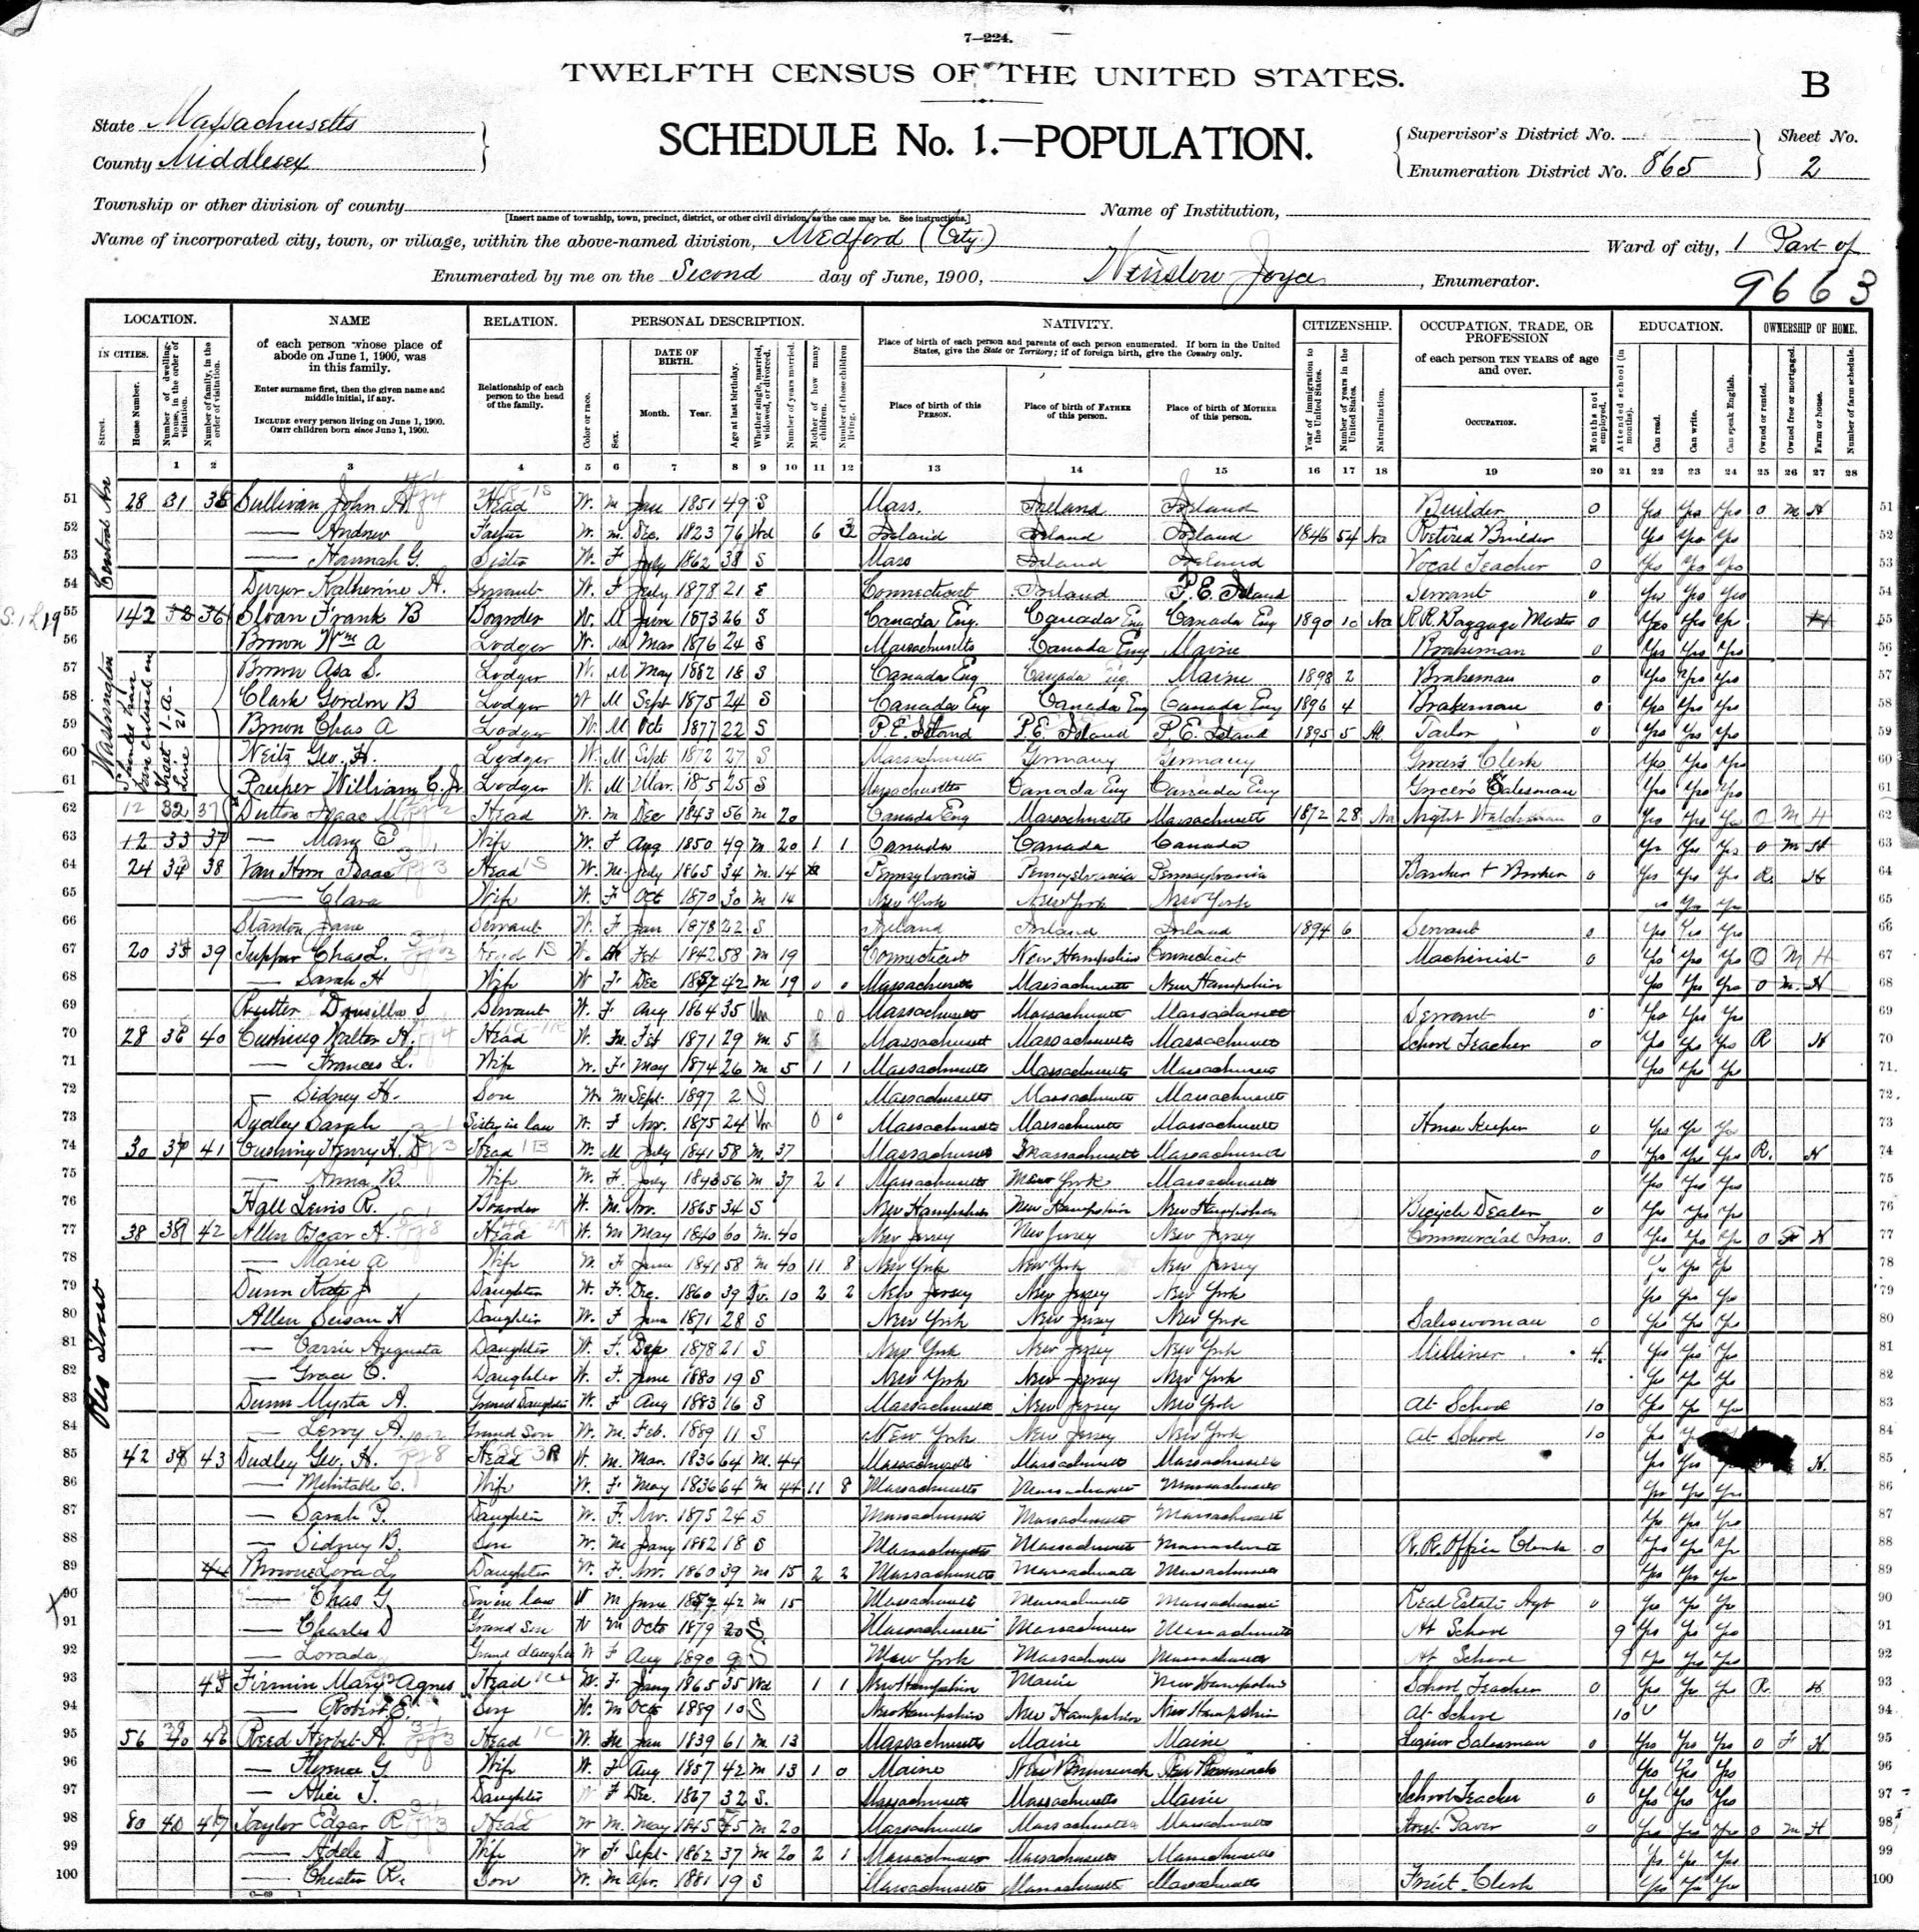 7—224.
TWELFTH CENSUS OF THE UNITED STATES.
B
State Massachusetts
County Middlesex
SCHEDULE No. 1.—POPULATION.
Supervisor's District No.
Enumeration District No. 865
Sheet No.
2
Township or other division of county
[Insert name of township, town, precinct, district, or other civil division, as the case may be. See instructions.]
Name of Institution,
Name of incorporated city, town, or village, within the above-named division, Medford (City)
Ward of city, 1 Part of
Enumerated by me on the Second day of June, 1900, Winslow Joyce, Enumerator.
9663
LOCATION.
IN CITIES.
Street.
House Number.
Number of dwelling-house, in the order of visitation.
Number of family, in the order of visitation.
NAME
of each person whose place of abode on June 1, 1900, was in this family.
Enter surname first, then the given name and middle initial, if any.
INCLUDE every person living on June 1, 1900. OMIT children born since June 1, 1900.
RELATION.
Relationship of each person to the head of the family.
PERSONAL DESCRIPTION.
Color or race.
Sex.
DATE OF BIRTH.
Month. Year.
Age at last birthday.
Whether single, married, widowed, or divorced.
Number of years married.
Mother of how many children.
Number of these children living.
NATIVITY.
Place of birth of each person and parents of each person enumerated. If born in the United States, give the State or Territory; if of foreign birth, give the Country only.
Place of birth of this PERSON.
Place of birth of FATHER of this person.
Place of birth of MOTHER of this person.
CITIZENSHIP.
Year of immigration to the United States.
Number of years in the United States.
Naturalization.
OCCUPATION, TRADE, OR PROFESSION
of each person TEN YEARS of age and over.
OCCUPATION.
Months not employed.
EDUCATION.
Attended school (in months).
Can read.
Can write.
Can speak English.
OWNERSHIP OF HOME.
Owned or rented.
Owned free or mortgaged.
Farm or house.
Number of farm schedule.
1 2 3 4 5 6 7 8 9 10 11 12 13 14 15 16 17 18 19 20 21 22 23 24 25 26 27 28
51 28 31 Sullivan John Head W. m 1851 49 S Mass. Ireland Ireland Builder 0 Yes Yes Yes O M H 51
52 — Andrew Father W. m. Dec. 1823 76 Wd 6 3 Ireland Ireland Ireland 1846 54 Na Retired Builder Yes Yes Yes 52
53 — Hannah G. Sister W. F July 1862 38 S Mass Ireland Ireland Vocal Teacher 0 Yes Yes Yes 53
54 Dwyer Katherine A. Servant W. F July 1878 21 S Connecticut Ireland P.E. Island Servant 0 Yes Yes Yes 54
55 142 36 Sloan Frank B Boarder W. M 1873 26 S Canada Eng. Canada Eng Canada Eng 1890 10 Na R.R. Baggage Master 0 Yes Yes Yes 55
56 Brown Wm A Lodger W. M Mar 1876 24 S Massachusetts Canada Eng Maine Brakeman 0 Yes Yes Yes 56
57 Brown Asa S. Lodger W. M May 1882 18 S Canada Eng Canada Eng. Maine 1898 2 Brakeman 0 Yes Yes Yes 57
58 Clark Gordon B Lodger W M Sept 1875 24 S Canada Eng Canada Eng Canada Eng 1896 4 Brakeman 0 Yes Yes Yes 58
59 Brown Chas A Lodger W. M Oct 1877 22 S P.E. Island P.E. Island P.E. Island 1895 5 Al. Tailor 0 Yes Yes Yes 59
60 Neitz Geo. H. Lodger W. M Sept 1872 27 S Massachusetts Germany Germany Grocers Clerk Yes Yes Yes 60
61 William C. Lodger W. M Mar. 1875 25 S Massachusetts Canada Eng Canada Eng Grocers Salesman Yes Yes Yes 61
62 12 32 37 Dutton Isaac M Head W. m Dec 1843 56 m 20 Canada Eng Massachusetts Massachusetts 1872 28 Na Night Watchman 0 Yes Yes Yes O M H 62
63 12 33 37 — Mary E Wife W. F Aug 1850 49 m 20 1 1 Canada Canada Canada Yes Yes Yes O M H 63
64 24 38 Van Horn Isaac Head W. m. July 1865 34 m. 14 Pennsylvania Pennsylvania Pennsylvania Banker + Broker 0 Yes Yes Yes R. H 64
65 — Clara Wife W. F Oct 1870 30 m 14 New York New York New York Yes Yes 65
66 Stanton Jane Servant W. F Jan 1878 22 S Ireland Ireland Ireland 1894 6 Servant 0 Yes Yes Yes 66
67 20 39 Tupper Chas L. Head W. M Feb 1842 58 m 19 Connecticut New Hampshire Connecticut Machinist 0 Yes Yes Yes O M H 67
68 — Sarah H Wife W F Dec 1857 42 m 19 0 0 Massachusetts Massachusetts New Hampshire Yes Yes Yes O M. H 68
69 Drusilla S Servant W. F Aug 1864 35 0 0 Massachusetts Massachusetts Massachusetts Servant 0 Yes Yes Yes 69
70 28 40 Cushing Walter H. Head W. m. Feb 1871 29 m 5 Massachusetts Massachusetts Massachusetts School Teacher 0 Yes Yes Yes R H 70
71 — Frances L. Wife W. F May 1874 26 m 5 1 1 Massachusetts Massachusetts Massachusetts Yes Yes Yes 71
72 — Sidney H. Son W m Sept 1897 2 S Massachusetts Massachusetts Massachusetts 72
73 Dudley Sarah Sister in law W. F Nov. 1875 24 0 0 Massachusetts Massachusetts Massachusetts House Keeper 0 Yes Yes Yes 73
74 30 41 Cushing Henry H. D Head W. M July 1841 58 M. 37 Massachusetts Massachusetts Massachusetts 0 Yes Yes Yes R. H 74
75 — Anna B. Wife W. F. July 1843 56 m 37 2 1 Massachusetts New York Massachusetts Yes Yes Yes 75
76 Hall Lewis R. Boarder W. M. Nov. 1865 34 S New Hampshire New Hampshire New Hampshire Bicycle Dealer 0 Yes Yes Yes 76
77 38 42 Allen Oscar A. Head W. m May 1840 60 m. 40 New Jersey New Jersey New Jersey Commercial Trav. 0 Yes Yes Yes O F H 77
78 — Marie A Wife W. F June 1841 58 m 40 11 8 New York New York New Jersey Yes Yes Yes 78
79 Dunn Kate J Daughter W. F. Dec. 1860 39 10 2 2 New Jersey New Jersey New York Yes Yes Yes 79
80 Allen Susan H Daughter W. F June 1871 28 S New York New Jersey New York Saleswoman 0 Yes Yes Yes 80
81 — Carrie Augusta Daughter W. F. 1878 21 S New York New Jersey New York Milliner 4 Yes Yes Yes 81
82 — Grace E. Daughter W. F. June 1880 19 S New York New Jersey New York Yes Yes Yes 82
83 Dunn Myrta A. Grand Daughter W. F Aug 1883 16 S Massachusetts New Jersey New York At School 10 Yes Yes Yes 83
84 — Leroy A. Grand Son W. m. Feb. 1889 11 S New York New Jersey New York At School 10 Yes 84
85 42 43 Dudley Geo. H. Head W. m. Mar. 1836 64 M. 44 Massachusetts Massachusetts Massachusetts Yes Yes H. 85
86 — Mehitable C. Wife W. F May 1836 64 m 44 11 8 Massachusetts Massachusetts Massachusetts Yes Yes Yes 86
87 — Sarah P. Daughter W. F. Nov. 1875 24 S Massachusetts Massachusetts Massachusetts Yes Yes Yes 87
88 — Sidney B. Son W. M Jany 1882 18 S Massachusetts Massachusetts Massachusetts R.R. Office Clerk 0 Yes Yes Yes 88
89 Brown Lora L Daughter W. F. Nov. 1860 39 m 15 2 2 Massachusetts Massachusetts Massachusetts Yes Yes Yes 89
90 — Chas G Son in law W m June 1857 42 m 15 Massachusetts Massachusetts Massachusetts Real Estate Agt 0 Yes Yes Yes 90
91 — Charles D Grand Son W m Octo 1879 20 S Massachusetts Massachusetts Massachusetts At School 9 Yes Yes Yes 91
92 — Lorada Grand daughter W F Aug 1890 9 S New York Massachusetts Massachusetts At School 9 Yes Yes Yes 92
93 Firmin Mary Agnes Head W. F. Jany 1865 35 Wd 1 1 New Hampshire Maine New Hampshire School Teacher 0 Yes Yes Yes R. H 93
94 — Robert E. Son W. m Octo 1889 10 S New Hampshire New Hampshire New Hampshire At School 10 94
95 56 46 Reed Herbert A. Head W. M Jan 1839 61 m. 13 Massachusetts Maine Maine Liquor Salesman 0 Yes Yes Yes O F H 95
96 — Florence G Wife W. F Aug 1857 42 m 13 1 0 Maine New Brunswick New Brunswick Yes Yes Yes 96
97 — Alice J. Daughter W F Dec. 1867 32 S. Massachusetts Massachusetts Maine School Teacher 0 Yes Yes Yes 97
98 80 40 47 Taylor Edgar R Head W M. May 1845 m 20 Massachusetts Massachusetts Massachusetts Street Paver 0 Yes Yes Yes O m H 98
99 — Adele D Wife W F Sept 1862 37 m 20 2 1 Massachusetts Massachusetts Massachusetts Yes Yes Yes 99
100 — Chester R. Son W. m Apr. 1881 19 S Massachusetts Massachusetts Massachusetts Fruit Clerk Yes Yes Yes 100
Washington